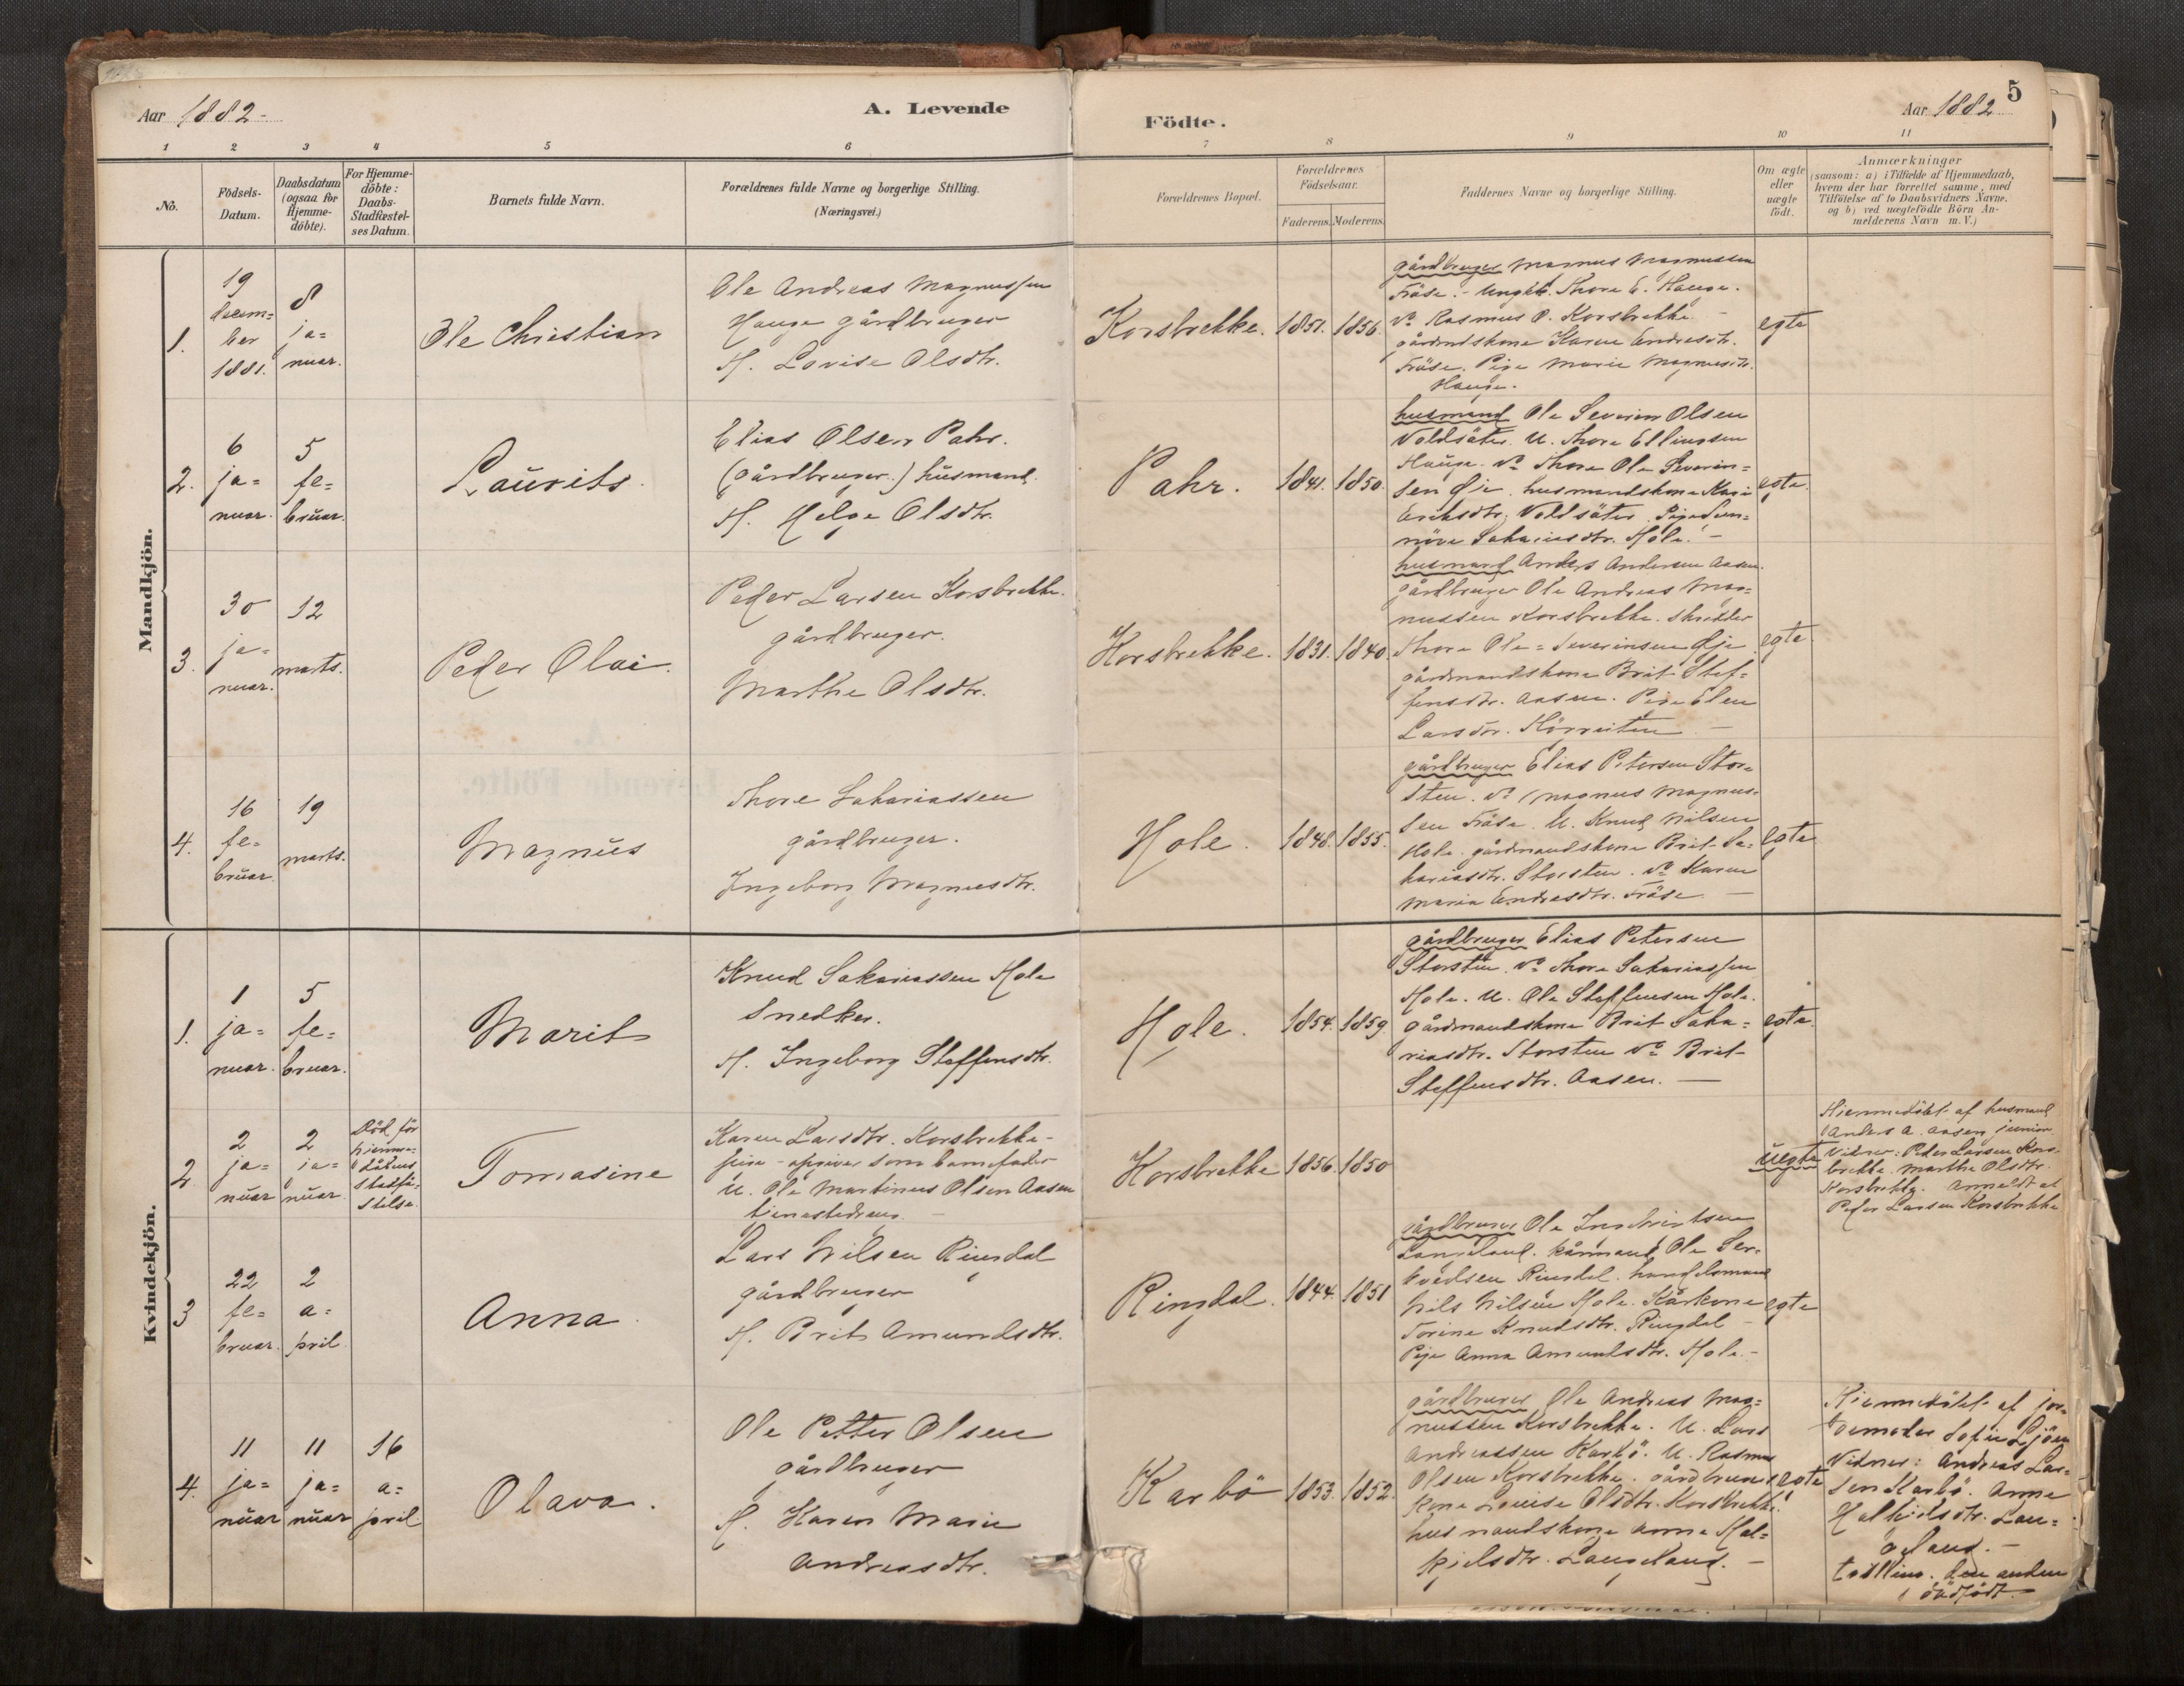 Aar 1882.
A. Levende
Födte.
Aar 1882
5
1
2
3
4
5
6
7
8
9
10
11
No.
Födsels-
Datum.
Daabsdatum
(ogsaa for
Hjemme-
döbte).
For Hjemme-
döbte:
Daabs-
Stadfæstel-
ses Datum.
Barnets fulde Navn.
Forældrenes fulde Navne og borgerlige Stilling.
(Næringsvei.)
Forældrenes Bopæl.
Forældrenes
Födselsaar.
Faderens.
Moderens.
Faddernes Navne og borgerlige Stilling.
Om ægte
eller
uægte
födt.
Anmærkninger
(saasom: a) i Tilfælde af Hjemmedaab,
hvem der har forrettet samme, med
Tilföielse af to Daabsvidners Navne,
og b) ved uægtefödte Börn An-
melderens Navn m. V.)
Mandkjön.
1.
19
decem=
ber
1881.
8
ja=
nuar.
Ole Christian
Ole Andreas Magnussen
Hauge gårdbruger
H. Lovise Olsdtr.
Korsbrekke.
1851.
1856.
gårdbruger Magnus Magnussen
Fråse. - Ungkl. Thore E. Hauge.
do Rasmus O. Korsbrekke. -
gårdmdskone Karen Endresdtr.
Fråse. Pige Marie Magnusdtr.
Hauge.
egte
2.
6
ja=
nuar.
5
fe=
bruar.
Laurits.
Elias Olsen Pahr.
(gårdbruger.) husmand.
H. Helge Olsdtr.
Pahr.
1841.
1850.
husmand Ole Severin Olsen
Voldsäter. U. Thore Ellingsen
Hauge. do Thore Ole Severin=
sen Øje. husmandskone Kari
Eriksdtr. Voldsäter. Pige Sun=
növe Sakariasdtr. Hole. -
egte.
3.
30
ja=
nuar.
12
marts.
Peder Olai.
Peder Larsen Korsbrekke.
gårdbruger.
Marthe Olsdtr.
Korsbrekke.
1831.
1840.
husmand Anders Andersen Aasen.
gårdbruger Ole Andreas Mag=
nussen Korsbrekke. skrædder
Thore Ole = Severinsen Øje
gårdmandskone Brit Stef=
fensdtr. Aasen. Pige Elen
Larsdtr.
egte.
4.
16
fe=
bruar.
19
marts.
Magnus
Thore Sakariassen
gårdbruger.
Ingeborg Magnusdtr.
Hole.
1848.
1855.
gårdbruger Elias Petersen Stor=
sten. do Magnus Magnus=
sen Fråse. U. Knud Nilsen
Hole. gårdmandskone Brit Sa=
kariasdtr. Storsten. do Karen
Maria Endresdtr. Fråse -
egte
Kvindekjön.
1.
1
ja=
nuar.
5
fe=
bruar.
Marit
Knud Sakariassen Hole
Snedker.
H. Ingeborg Steffensdtr.
Hole.
1854.
1859.
gårdbruger Elias Petersen
Storsten. do Thore Sakariassen
Hole. U. Ole Steffensen Hole.
gårdmandskone Brit Saka=
riasdtr. Storsten do Brit
Steffensdtr. Aasen. -
egte.
2
2
ja=
nuar
2
ja=
nuar
Död för
hjemme=
dåbens
stadfæ=
stelse.
Tomasine
Karen Larsdtr. Korsbrekke -
pige - opgiver som barnefader
U. Ole Martinus Olsen Aasen
tjenestedreng. -
Korsbrekke
1856.
1850
uegte
Hjemmedöbt af husmand
Anders A. Aasen junior.
Vidner: Peder Larsen Kors=
brekke. Marthe Olsdtr.
Korsbrekke. Anmeldt af
Peder Larsen Korsbrekke
3
22
fe=
bruar.
2
a=
pril
Anna.
Lars Nilsen Ringdal
gårdbruger
H. Brit Amundsdtr.
Ringdal.
1844.
1851
gårdbruger Ole Ingebrigtsen
Langeland. kårmand Ole Ser=
Ringdal. handelsmand
Nils Nilsen Hole. Kårkone
Torine Knudsdtr. Ringdal -
Pige Anna Amundsdtr. Hole. -
egte
4.
11
ja=
nuar
11
ja=
nuar
16
a=
pril
Olava.
Ole Petter Olsen
gårdbruger
H. Karen Marie
Andreasdtr.
Karbö
1853.
1852.
gårdbruger Ole Andreas Mag=
nussen Korsbrekke. U. Lars
Andreassen Karbö. U. Rasmus
Olsen Korsbrekke. gårdbruger=
kone Louise Olsdtr. Korsbrekke.
husmandskone Anne Hal=
kjelsdtr. Langeland. -
egte
Hjemmedöbt af jor=
demoder Sofie
Vidner: Andreas Lar=
sen Karbö. Anne
Halkjelsdtr. Lan=
geland. -
tvilling. den anden
dödfödt.